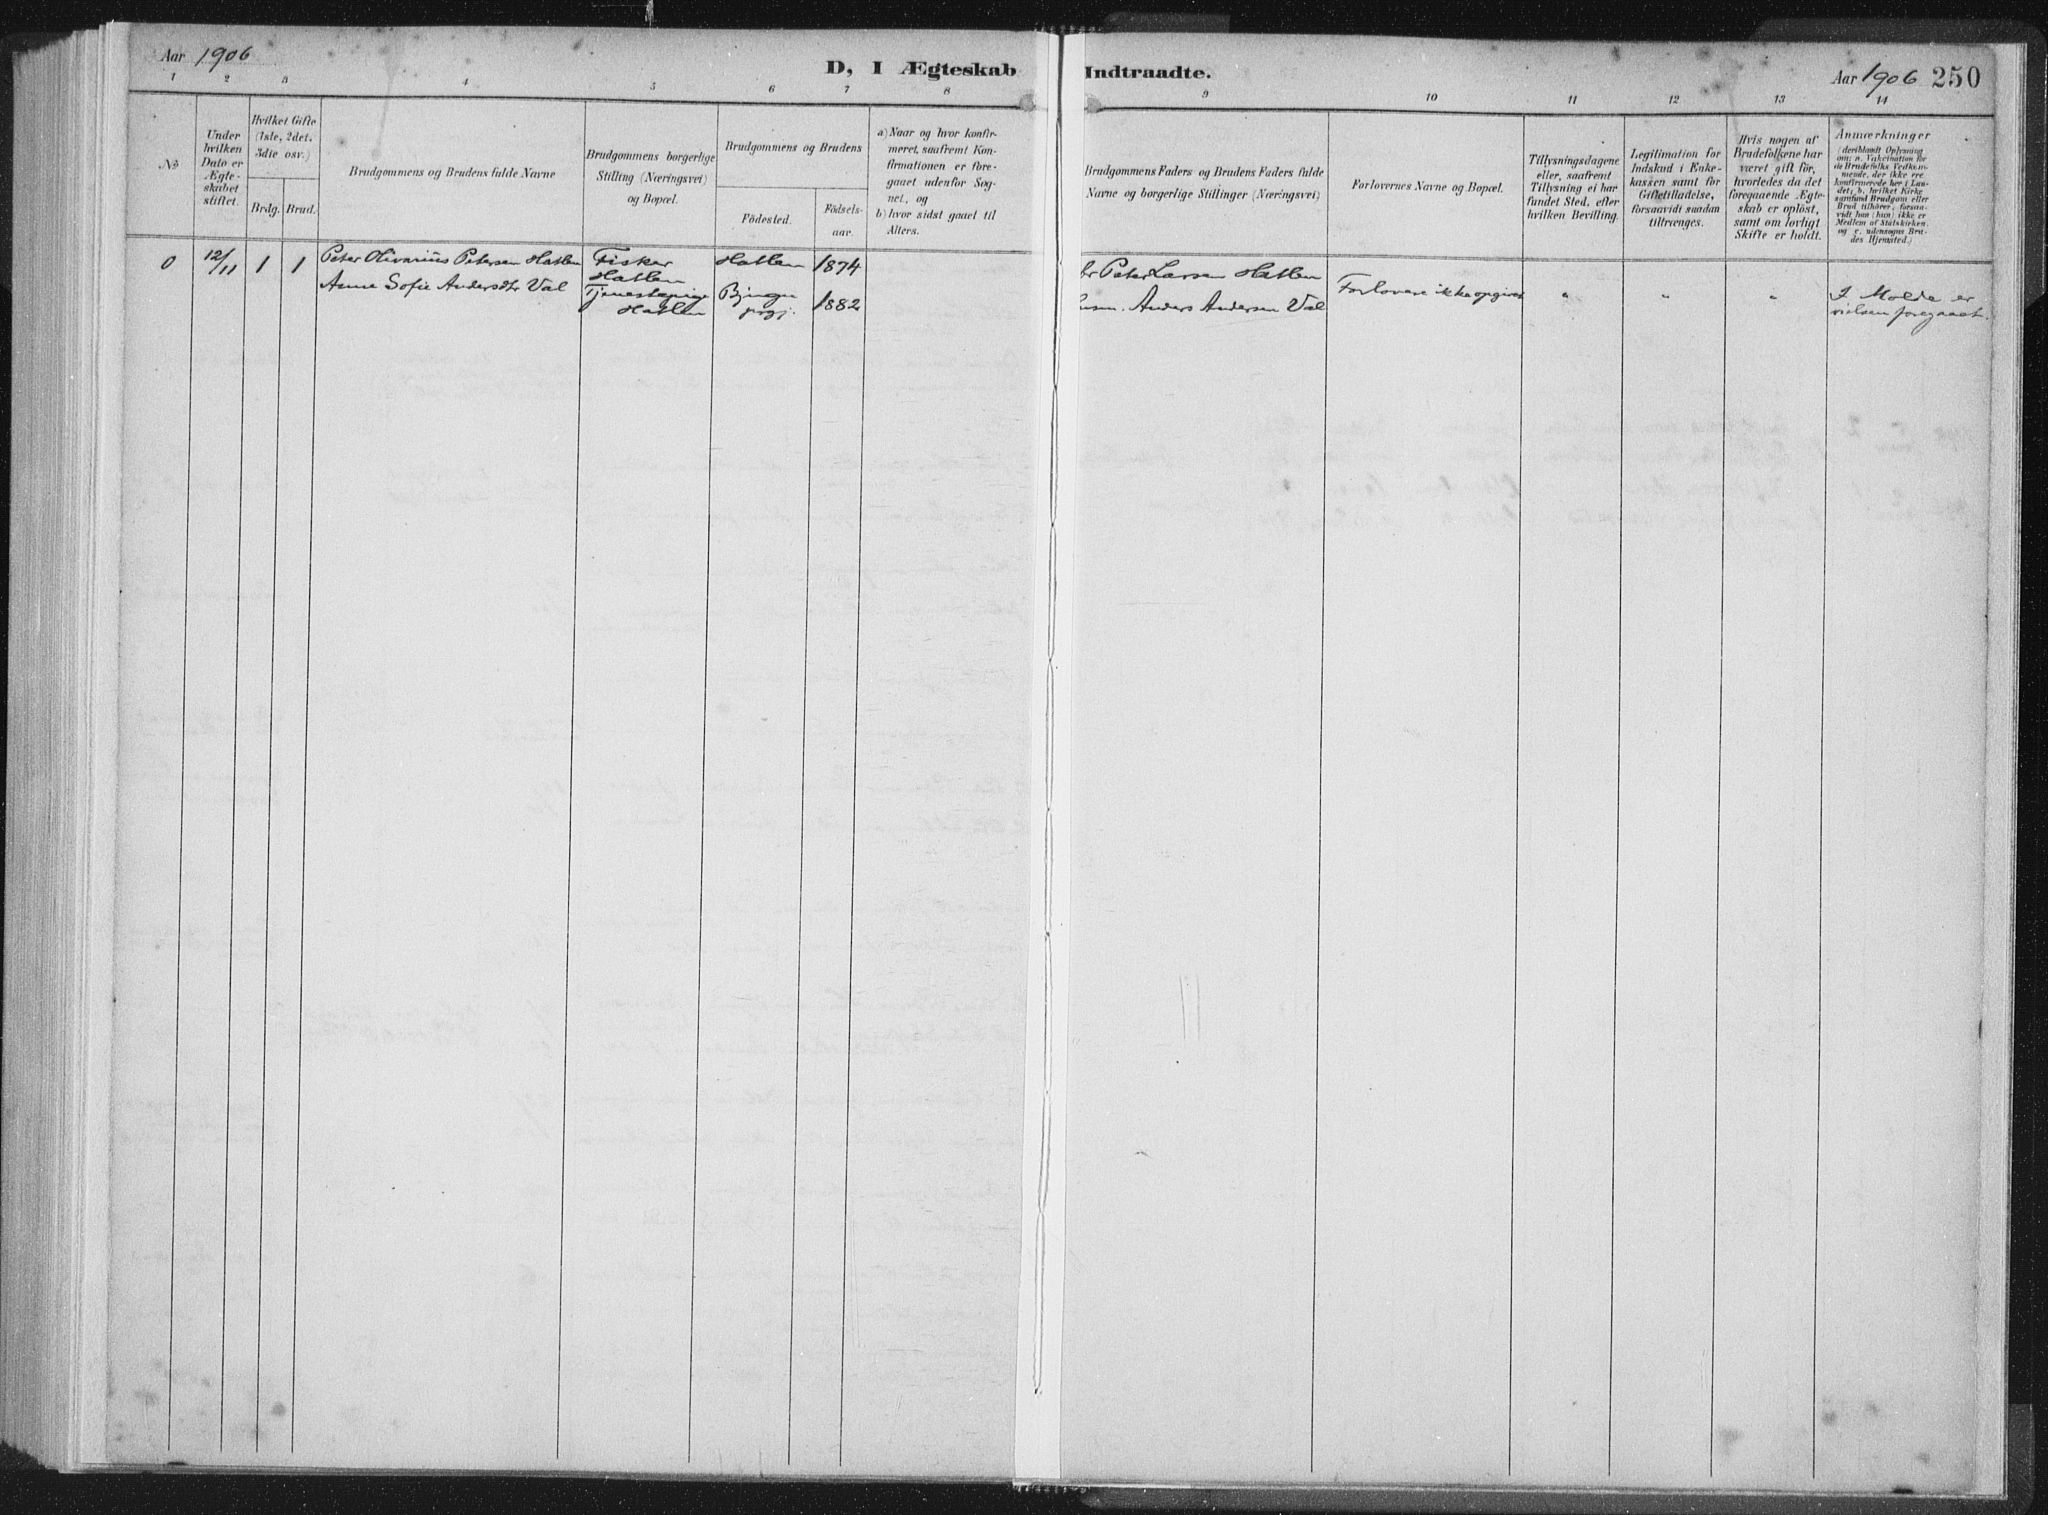 Aar 1906
D, I Ægteskab Indtraadte.
Aar 1906 250
1 2 3 4 5 6 7 8 9 10 11 12 13 14
No
Under hvilken Dato er Ægteskabet stiftet.
Hvilket Gifte (1ste, 2det, 3die osv.)
Brdg. Brud.
Brudgommens og Brudens fulde Navne
Brudgommens borgerlige Stilling (Næringsvei) og Bopæl.
Brudgommens og Brudens
Födested.
Födselsaar.
a) Naar og hvor konfirmeret, saafremt Konfirmationen er foregaaet udenfor Sognet, og
b) hvor sidst gaaet til Alters.
Brudgommens Faders og Brudens Faders fulde Navne og borgerlige Stillinger (Næringsvei)
Forlovernes Navne og Bopæl.
Tillysningsdagene eller, saafremt Tillysning ei har fundet Sted, efter hvilken Bevilling.
Legitimation for Indskud i Enkekassen samt for Giftetilladelse, forsaavidt saadan tiltrænges.
Hvis nogen af Brudefolkene har været gift för, hvorledes da det foregaaende Ægteskab er oplöst, samt om lovligt Skifte er holdt.
Anmærkninger
(deriblandt Oplysning om: a. Vakcination for de Brudefolks Vedkommende, der ikke ere konfirmerede her i Landet; b. hvilket Kirkesamfund Brudgom eller Brud tilhörer, forsaavidt han (hun) ikke er Medlem af Statskirken, og c. udensogns Brudes Hjemsted.)
0 12/11 1 1 Peter Olivarius Petersen Hatlen Fisker Hatlen Hatlen 1874 Peter Larsen Hatlen Forlovere ikke opgivet " " " I Molde er vielsen foregaaet.
Anne Sofie Andersdtr Val Tjenestepige Hatlen 1882 Anders Andersen Val